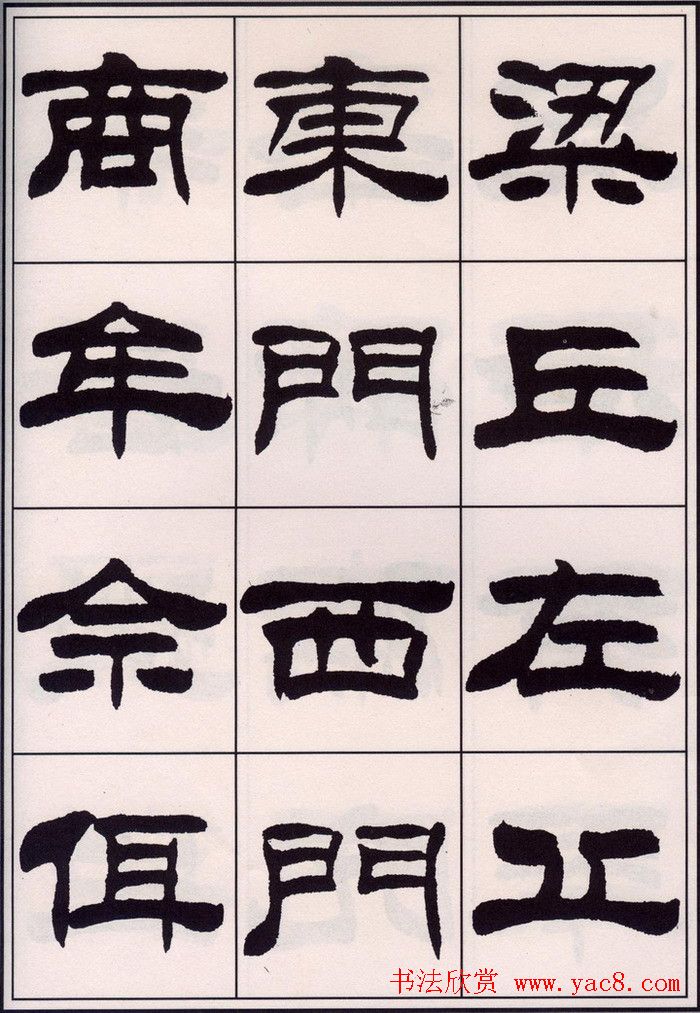 梁丘左丘
東門西門
商牟佘佴
书法欣赏 www.yac8.com